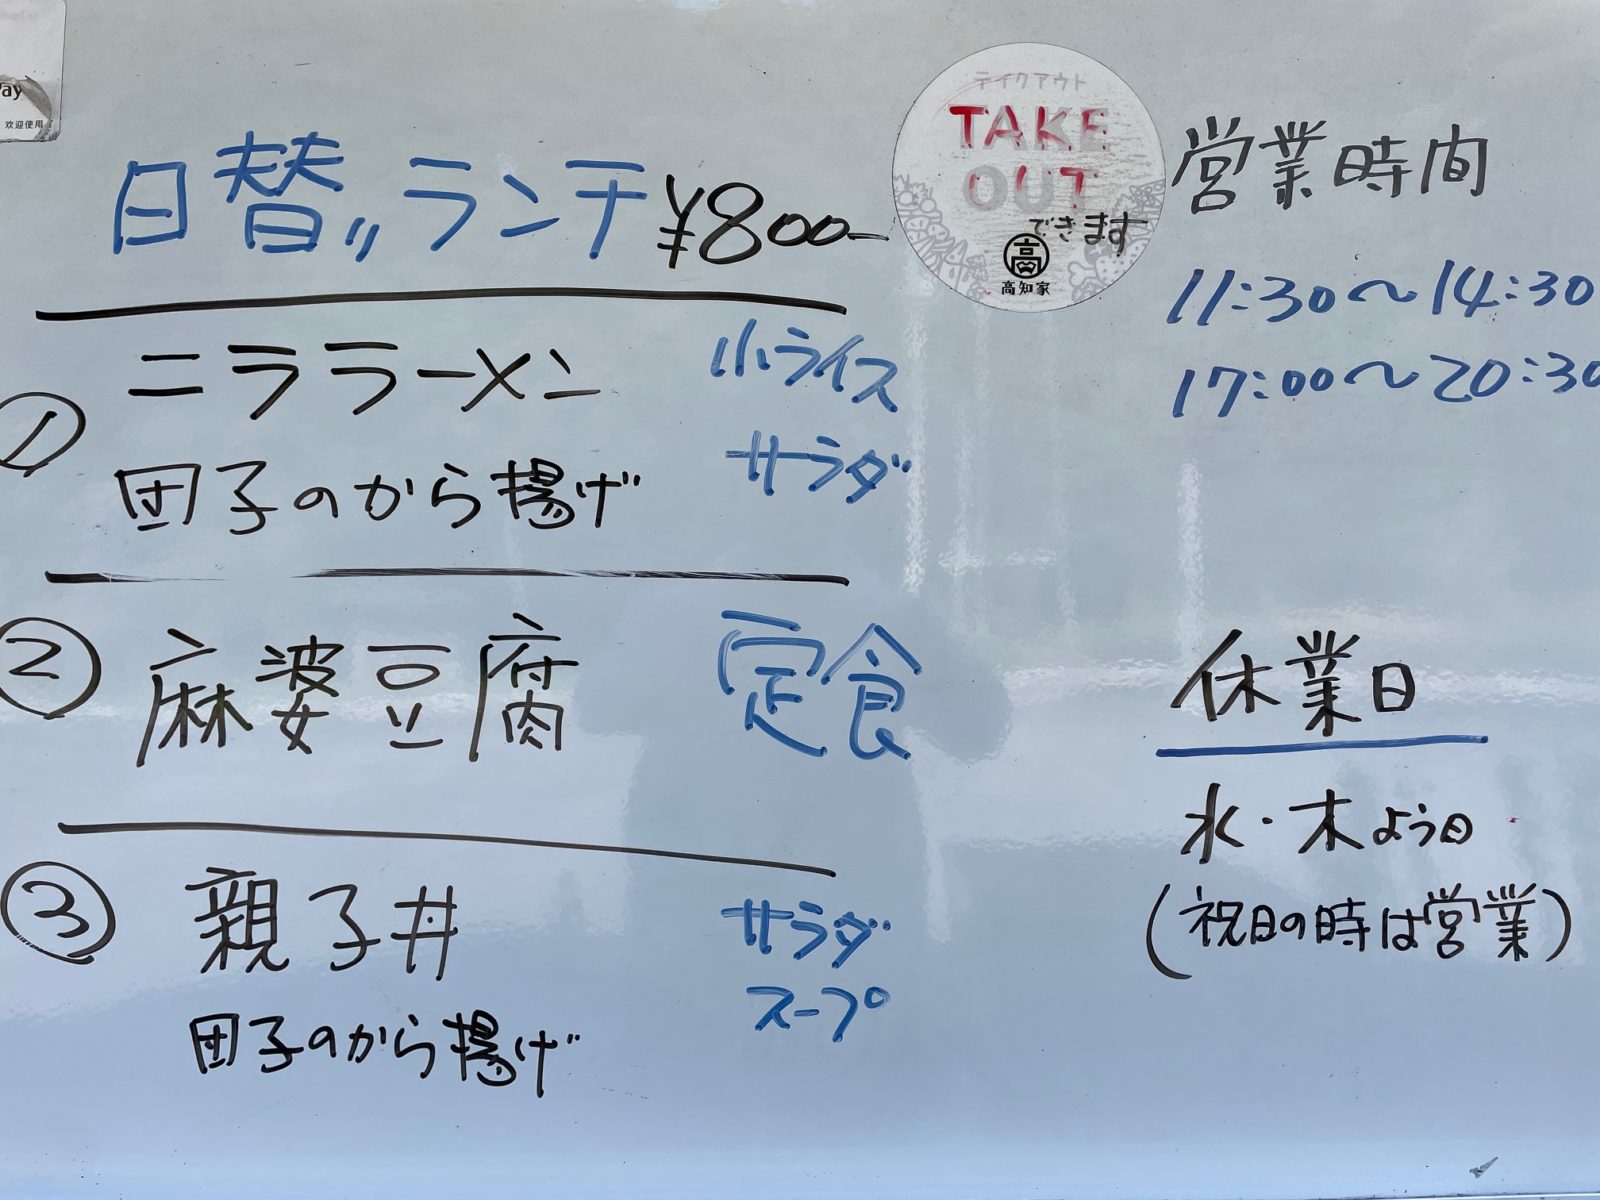 Pay
欢迎使用
日替りランチ ¥800-
① ニララーメン 小ライス
団子のから揚げ サラダ
② 麻婆豆腐 定食
③ 親子丼 サラダ
団子のから揚げ スープ
テイクアウト
TAKE
OUT
できます
高
高知家
営業時間
11:30～14:30
17:00～20:30
休業日
水・木よう日
(祝日の時は営業)